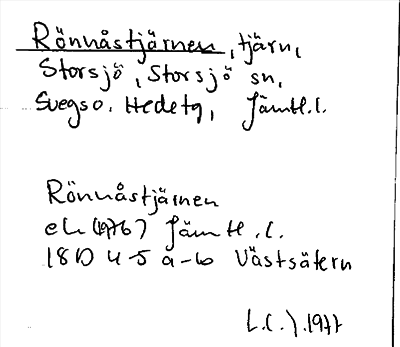 Rönnåstjärnen, tjärn,
Storsjö, Storsjö sn,
Svegs o. Hede tg, Jämtl. l.
Rönnåstjärnen
ek (1976) Jämtl. l.
18D 4-5 a-b Västsätern
L.(.).1977